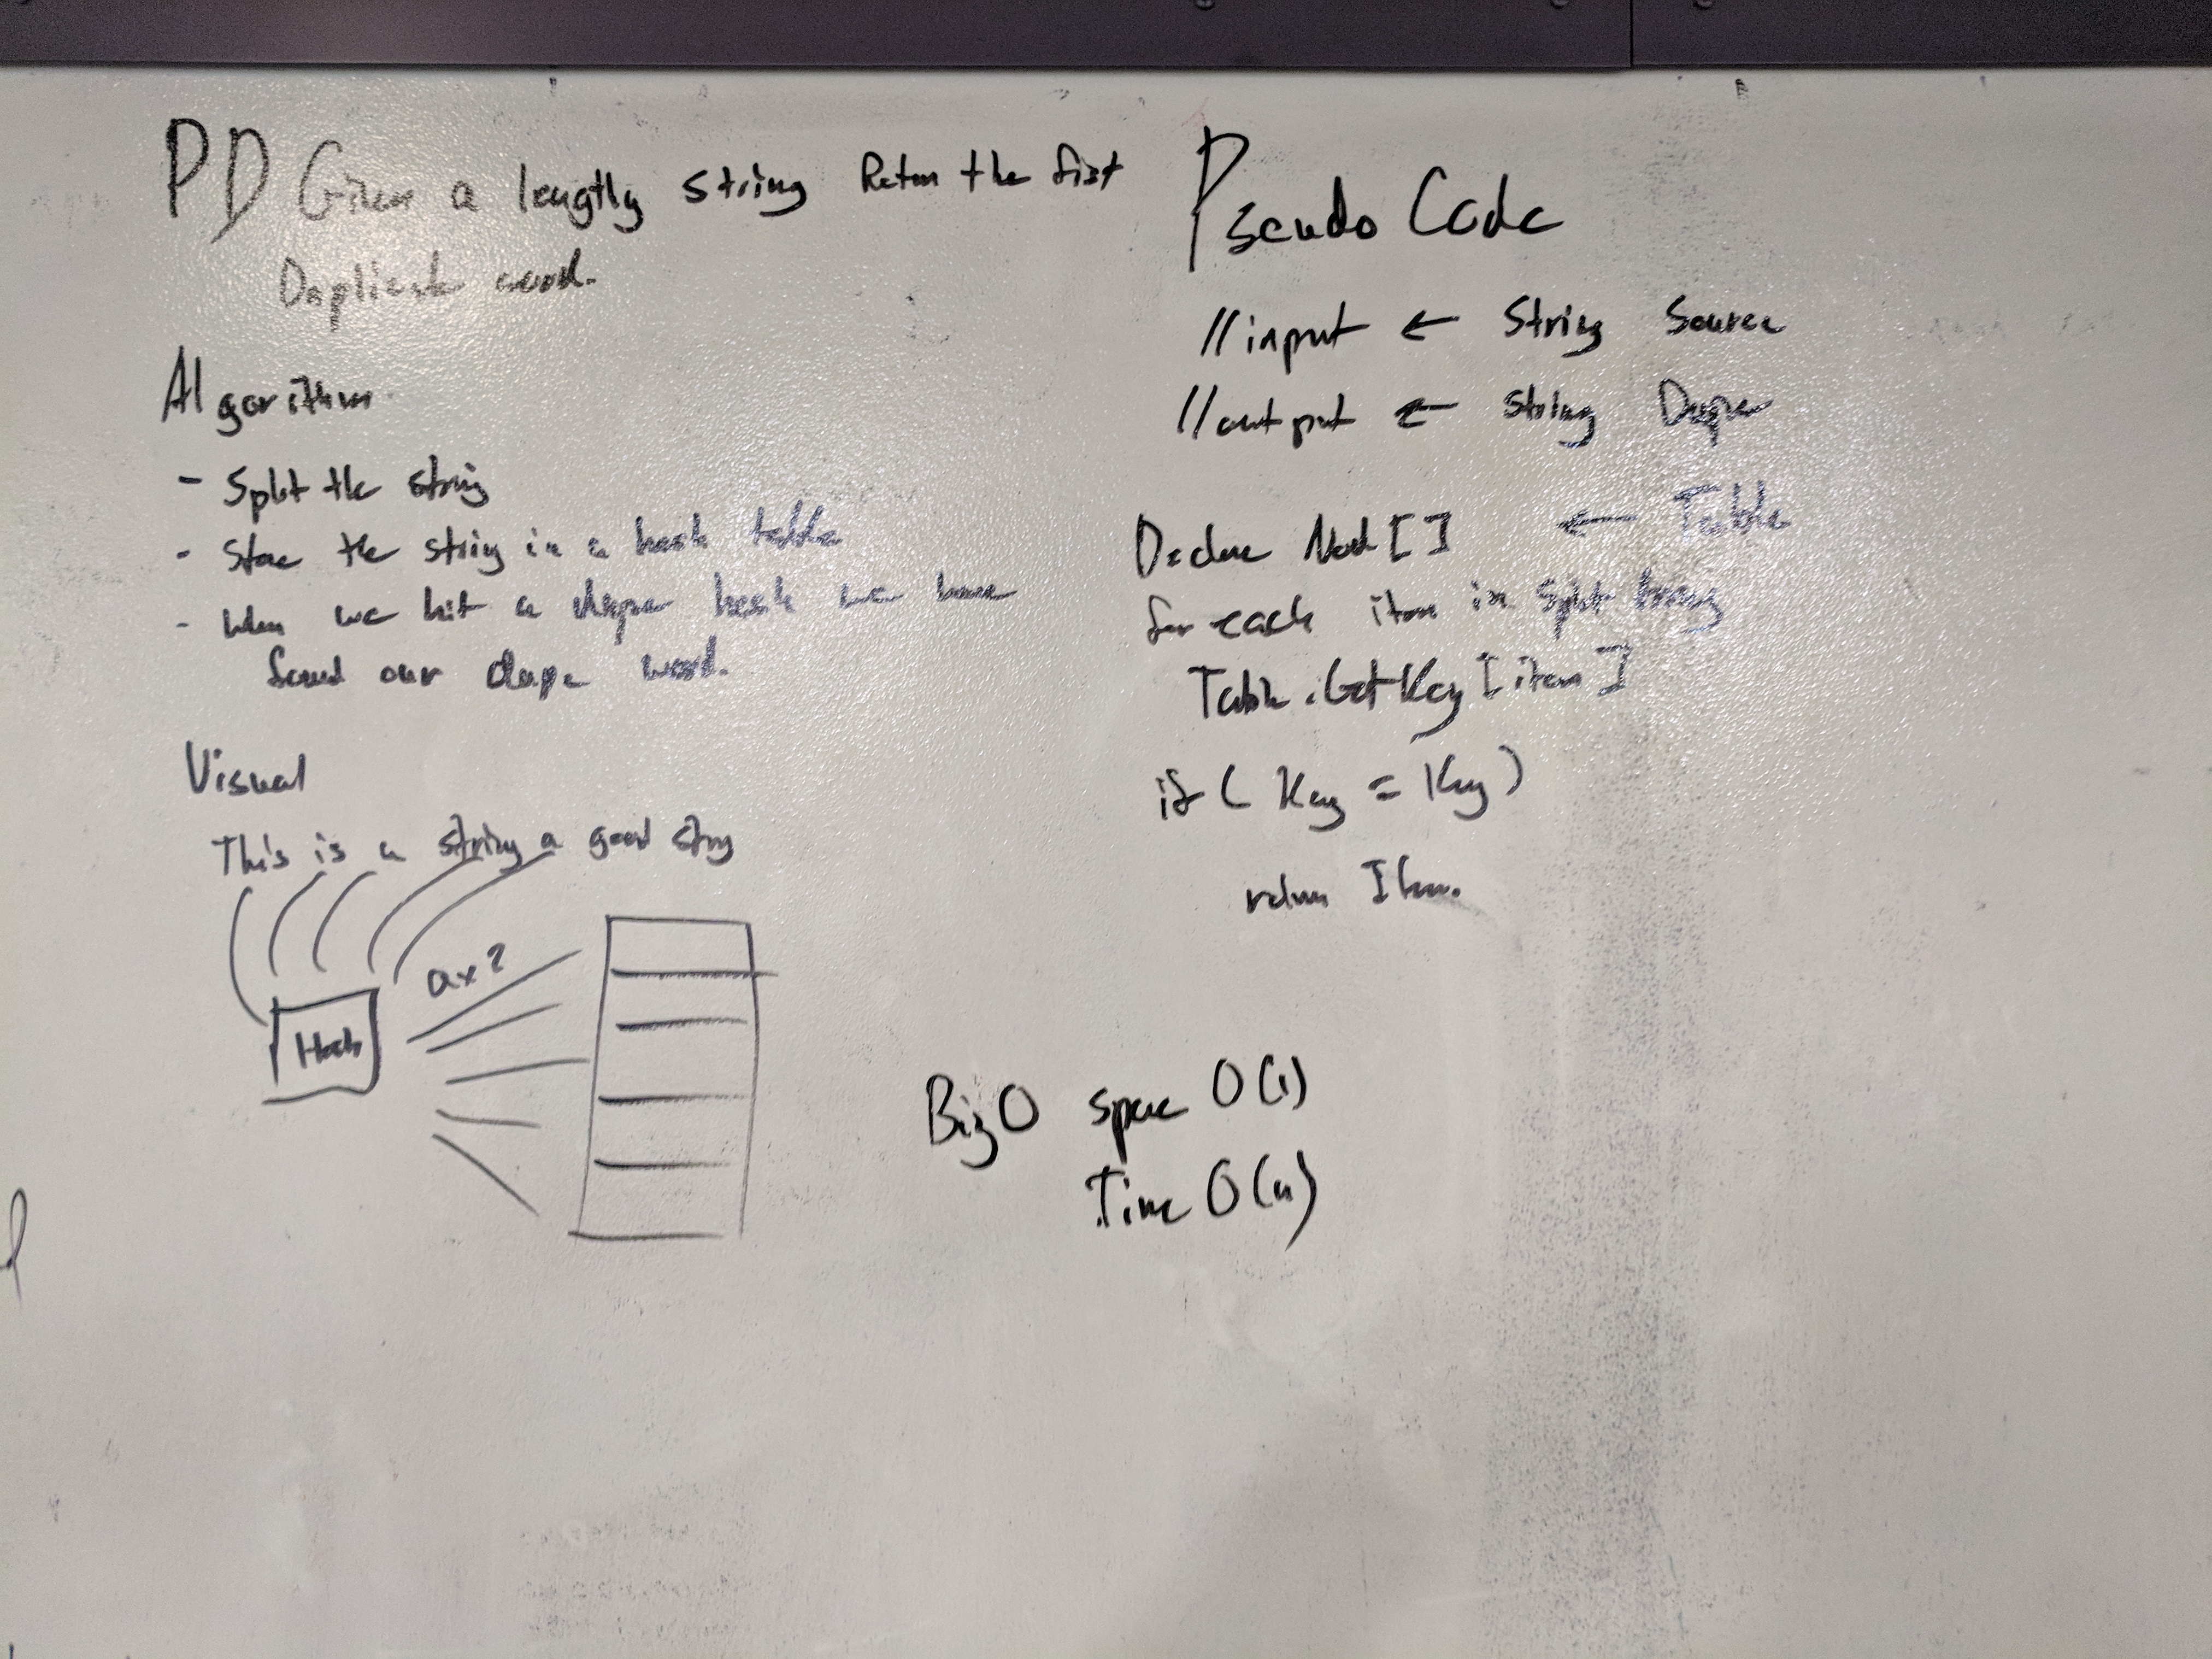 PD Given a lengtly string Retun the first
Duplicate word.
Algorithm
- Split the string
- Stoe the string in a hash table
- When we hit a dupe hash we have
found our dupe word.
Visual
This is a string a good strg
ax2
Hash
Pseudo Code
//input ← String Source
//output ← String Dupe
Declare Nod[] ← Table
for each item in split
Table.GetKey[item]
if ( Key = Key )
return Item.
Big O space O(1)
Time O(n)